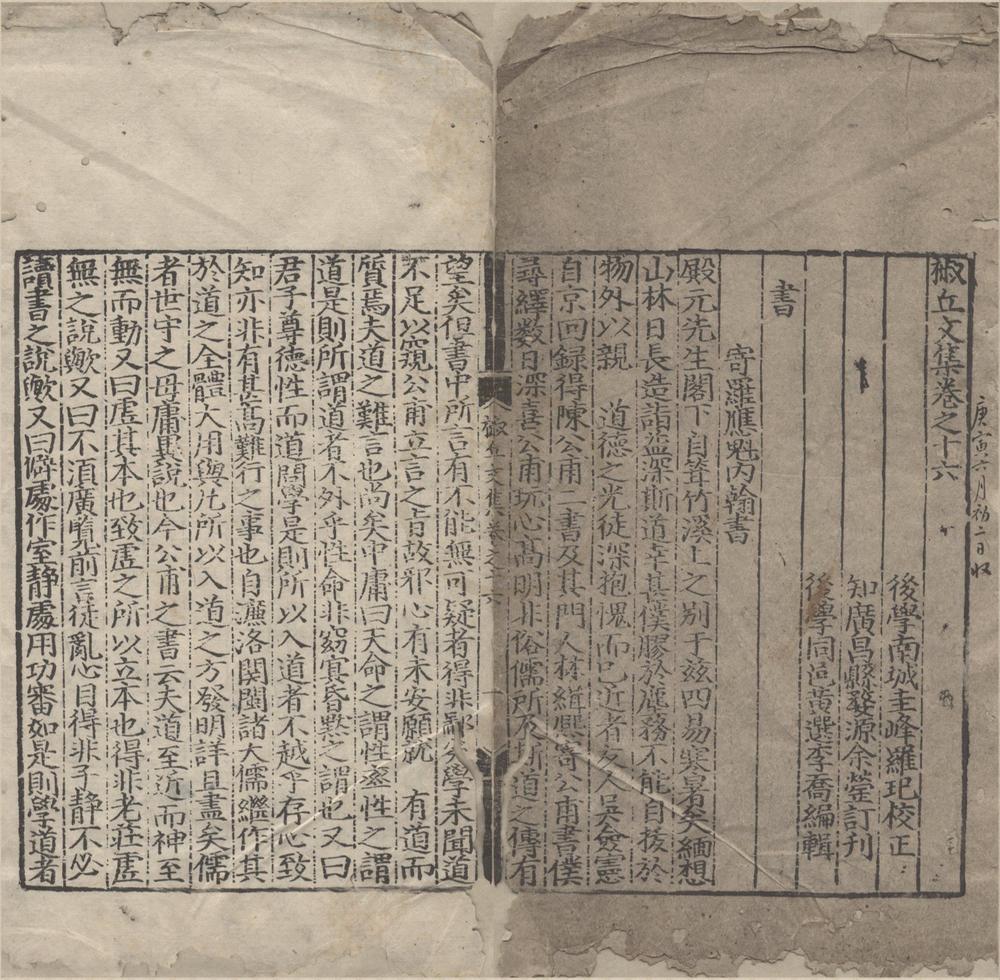 庚寅六月初二日收
椒丘文集卷之十六
後學南城圭峰羅玘校正
知廣昌縣婺源余罃訂刊
後學同邑黃選李喬編輯
書
寄羅應魁內翰書
殿元先生閣下自聳竹溪上之別于茲四易寒暑矣緬想
山林日長造詣益深斯道幸甚僕膠於塵務不能自拔於
物外以親 道德之光徒深抱愧而已近者友人吳僉憲
自京回錄得陳公甫二書及其門人林緝熙寄公甫書僕
尋繹數日深喜公甫玩心高明非俗儒所及斯道之傳有
椒丘文集卷之十六 一
望矣但書中所言有不能無可疑者得非鄙矣學未聞道
不足以窺公甫立言之旨故邪心有未安願就 有道而
質焉夫道之難言也尚矣中庸曰天命之謂性率性之謂
道是則所謂道者不外乎性命非窈冥昏默之謂也又曰
君子尊德性而道問學是則所以入道者不越乎存心致
知亦非有甚高難行之事也自濂洛関閩諸大儒繼作其
於道之全體大用與凡所以入道之方發明詳且盡矣儒
者世守之毋庸異說也今公甫之書云夫道至近而神至
無而動又曰虛其本也致虛之所以立本也得非老莊虛
無之說歟又曰不湏廣覧前言徒亂心目得非子靜不必
讀書之說歟又曰僻處作室静處用功審如是則學道者